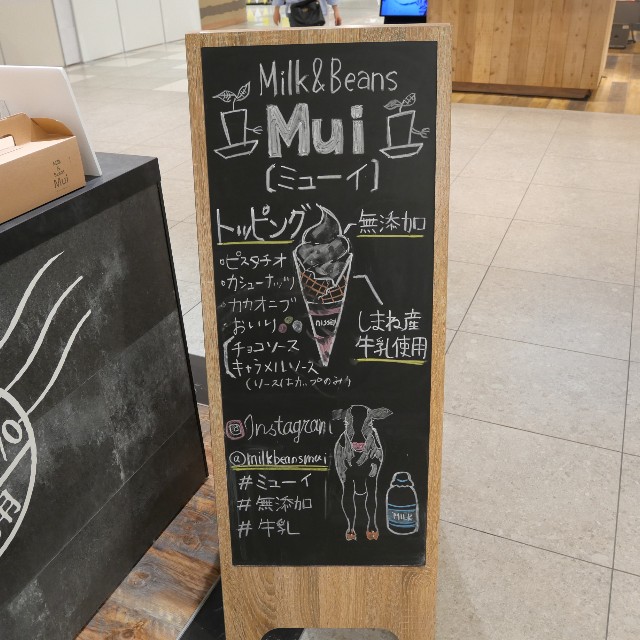 Milk&Beans
Mui
[ミューイ]
トッピング
無添加
・ピスタチオ
・カシューナッツ
・カカオニブ
・おいり
チョコソース
キャラメルソース
(ソースはカップのみ)
nissei
しまね産
牛乳使用
Instagram
@milkbeansmui
#ミューイ
#無添加
#牛乳
MILK
Mui